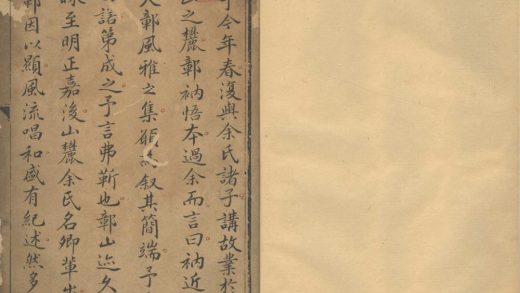 予今年春復與余氏諸子講故業於
氏之麓鄣衲悟本過余而言曰衲近
大鄣風雅之集願為叙其簡端予
話第成之予言弗靳也鄣山迹久
至明正嘉後山麓余氏名卿輩出
鄣因以顯風流唱和盛有紀述然多